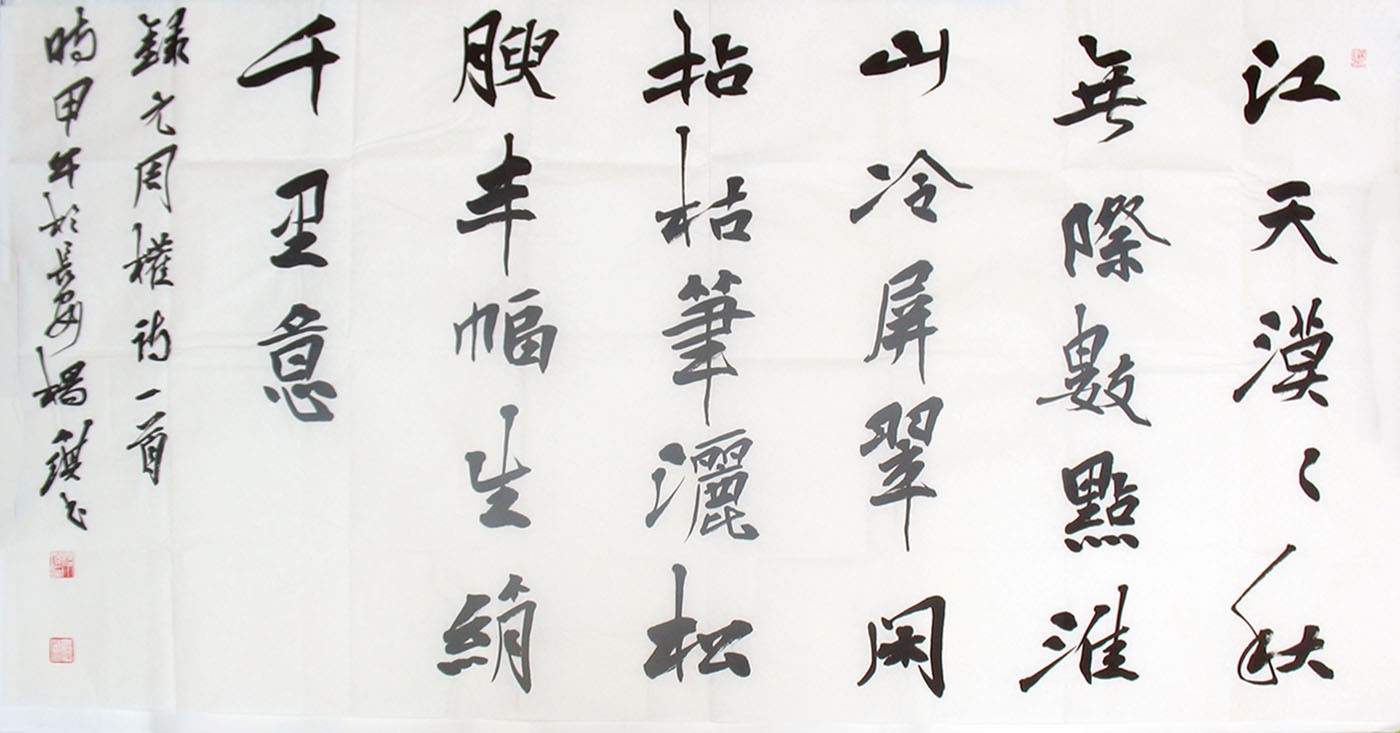 江天漠〻秋
無際數點淮
山冷屏翠閑
拈枯筆灑松
腴半幅生綃
千里意
錄元周權詩一首
時甲午於長安楊书